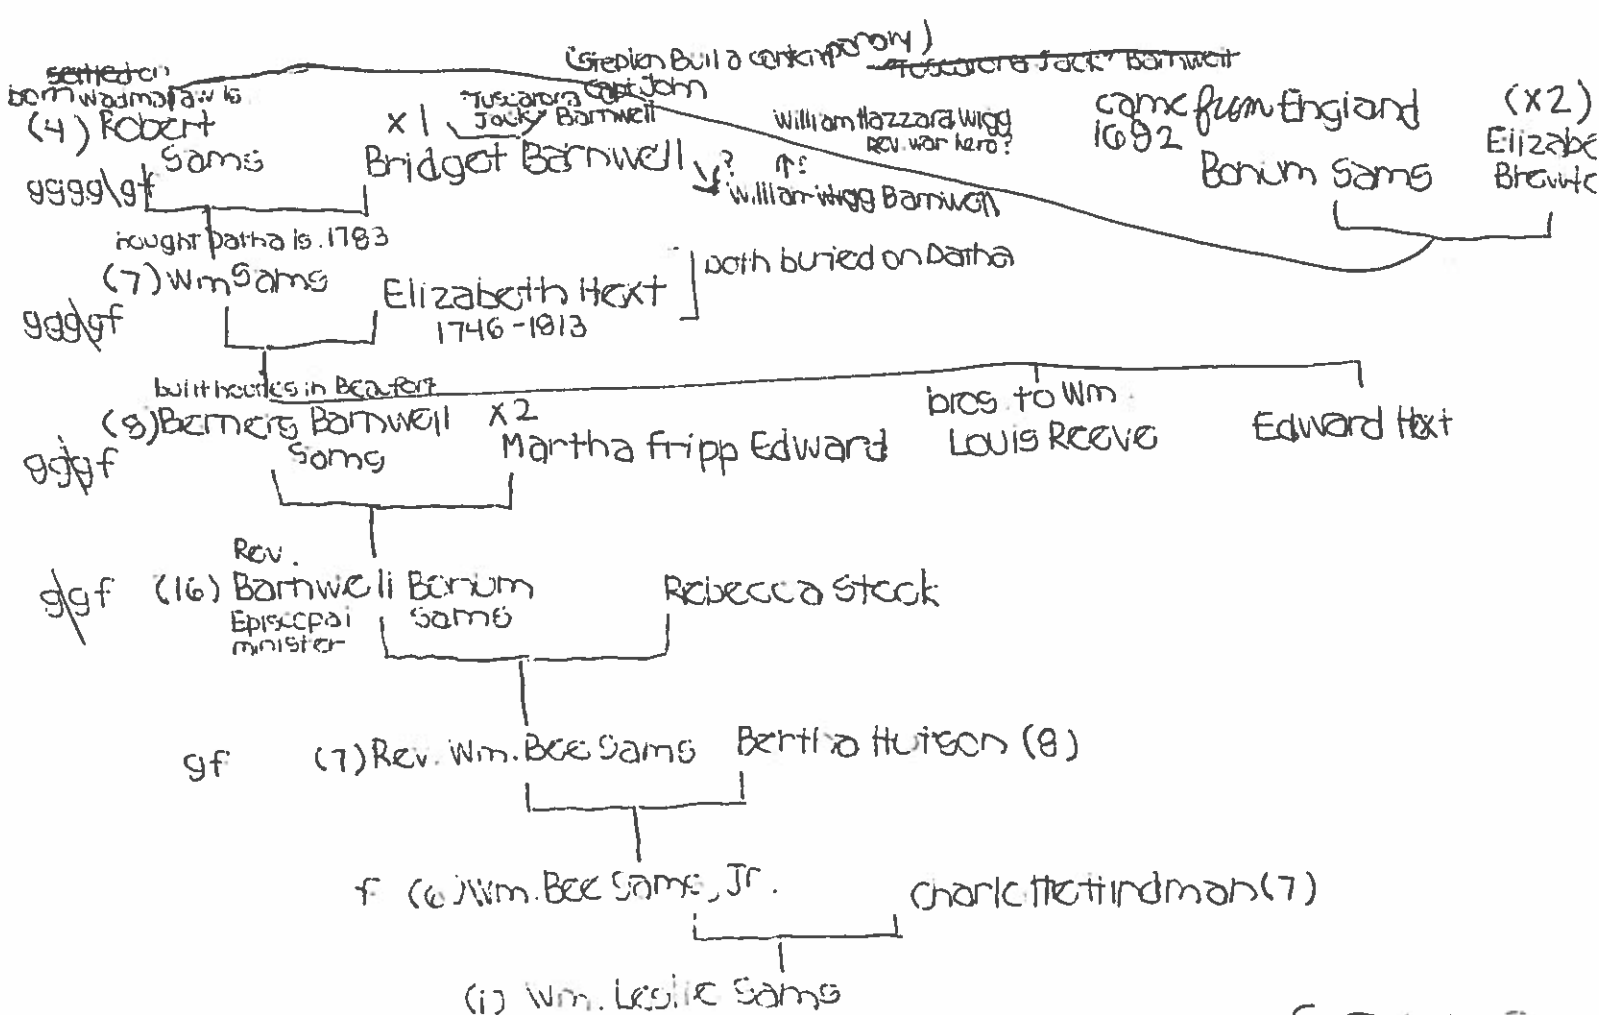 (Stephen Bull a contemporary)
settled on
"Tuscarora Jack" Barnwell
born Wadmalaw Is
Capt John
"Tuscarora
Jack" Barnwell
(4) Robert
Sams
x1
Bridget Barnwell
?
William Hazzard Wigg
Rev. war hero?
↑?
William Wigg Barnwell
came from England
1692
Bonum Sams
(x2)
Elizabe
gggg\gf
bought Datha is. 1783
(7) Wm Sams
Elizabeth Hext
1746-1813
both buried on Datha
ggg\gf
built houses in Beaufort
(8) Berners Barnwell
Sams
x2
Martha Fripp Edward
bros. to Wm
Louis Reeve
Edward Hext
gg\gf
Rev.
g\gf (16) Barnwell Bonum
Sams
Episcopal
minister
Rebecca Steck
gf (7) Rev. Wm. Bee Sams Bertha Hutson (8)
f (6) Wm. Bee Sams, Jr. Charlotte Hindman (7)
(1) Wm. Leslie Sams